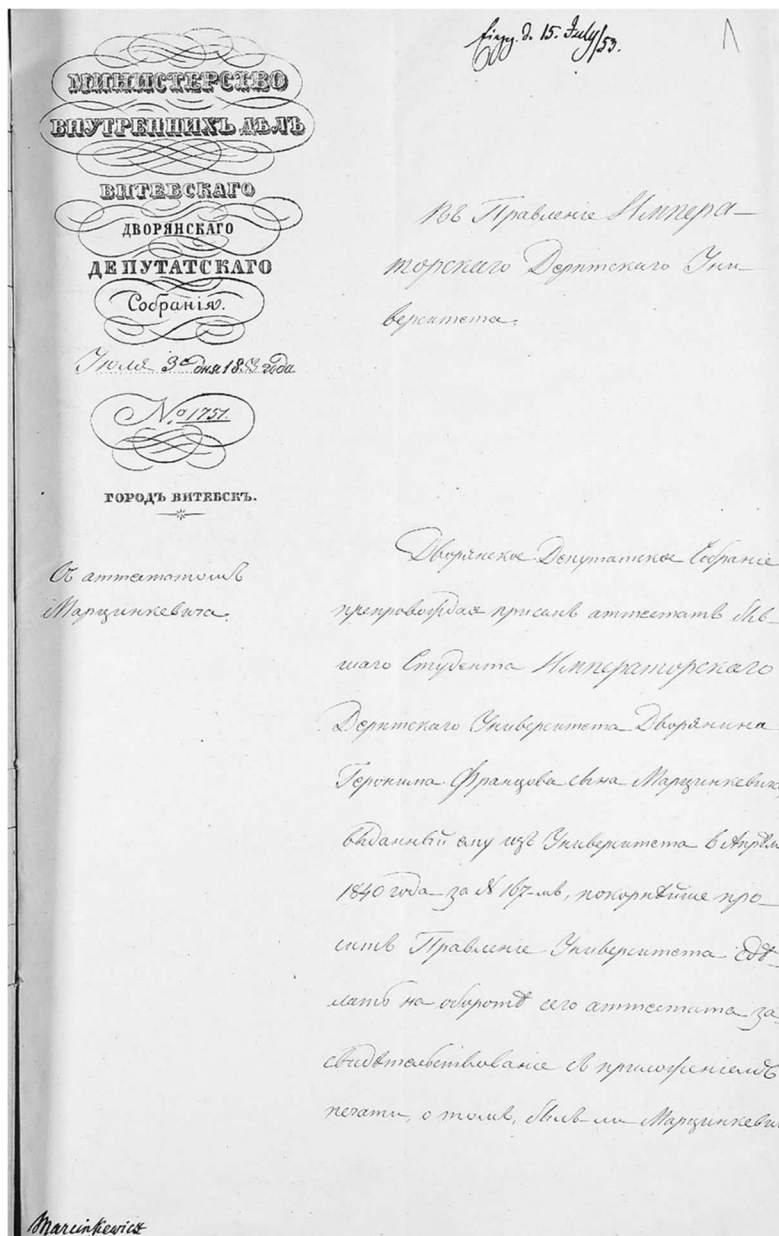 d. 15. July/53.
МИНИСТЕРСТВО
ВНУТРЕННИХЪ ДѢЛЪ
ВИТЕБСКАГО
ДВОРЯНСКАГО
ДЕПУТАТСКАГО
Собранія.
Іюля 3го дня 1853 года
№ 1757.
ГОРОДЪ ВИТЕБСКЪ.
Съ аттестатомъ
Марцинкевича.
Въ Правленіе Импера-
торскаго Дерптскаго Уни-
верситета.
Дворянское Депутатское Собраніе
препровождая присемъ аттестатъ быв-
шаго Студента Императорскаго
Дерптскаго Университета Дворянина
Геронима Францова сына Марцинкевича
выданный ему изъ Университета въ Апрѣлѣ
1840 года за № 167-мъ, покорнѣйше про-
ситъ Правленіе Университета сдѣ-
лать на оборотѣ сего аттестата за-
свидѣтельствованіе съ приложеніемъ
печати, о томъ, былъ-ли Марцинкевич
Marcinkewicz